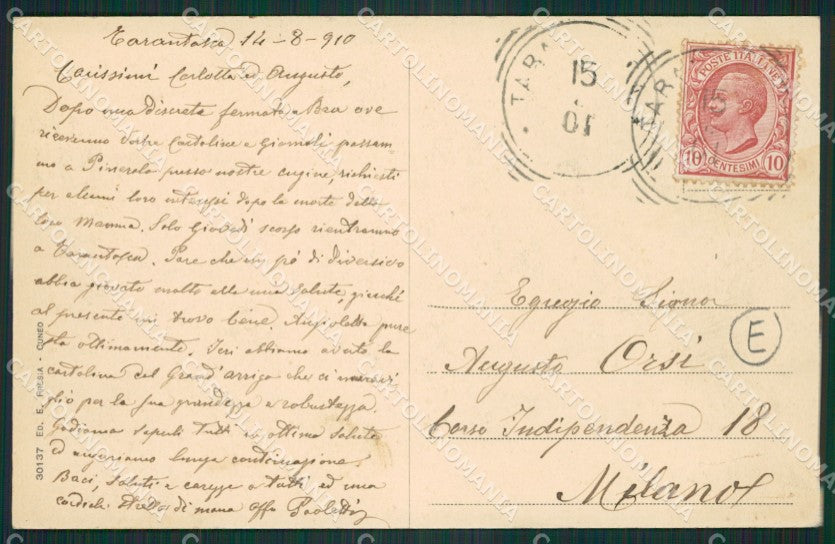 Tarantasca 14-8-910
Carissimi Carlotta ed Augusto,
Dopo una discreta fermata a Bra ove
ricevemmo vostre cartoline e giornali passam-
mo a Pinerolo presso nostre cugine, richiesti
per alcuni loro interessi dopo la morte della
loro Mamma. Solo Giovedì scorso rientrammo
a Tarantasca. Pare che un pó di diversivo
abbia giovato molto alla mia salute, giacchè
al presente mi trovo bene. Angioletta pure
sta ottimamente. Ieri abbiamo avuto la
cartolina del Grand'arrigo che ci meravi
glio per la sua grandezza e robustezza.
Godiamo saperli tutti in ottima salute
ed auguriamo lunga continuazione.
Baci, saluti e carezze a tutti ed una
cordiale stretta di mano Aff Paoletti
30137 ED. E. FRESIA - CUNEO
TARA
15
01
TARA
15
POSTE ITALIANE
10 CENTESIMI 10
Egregio Signor
E
Augusto Orsi
Corso Indipendenza 18
Milano
CARTOLINOMANIA